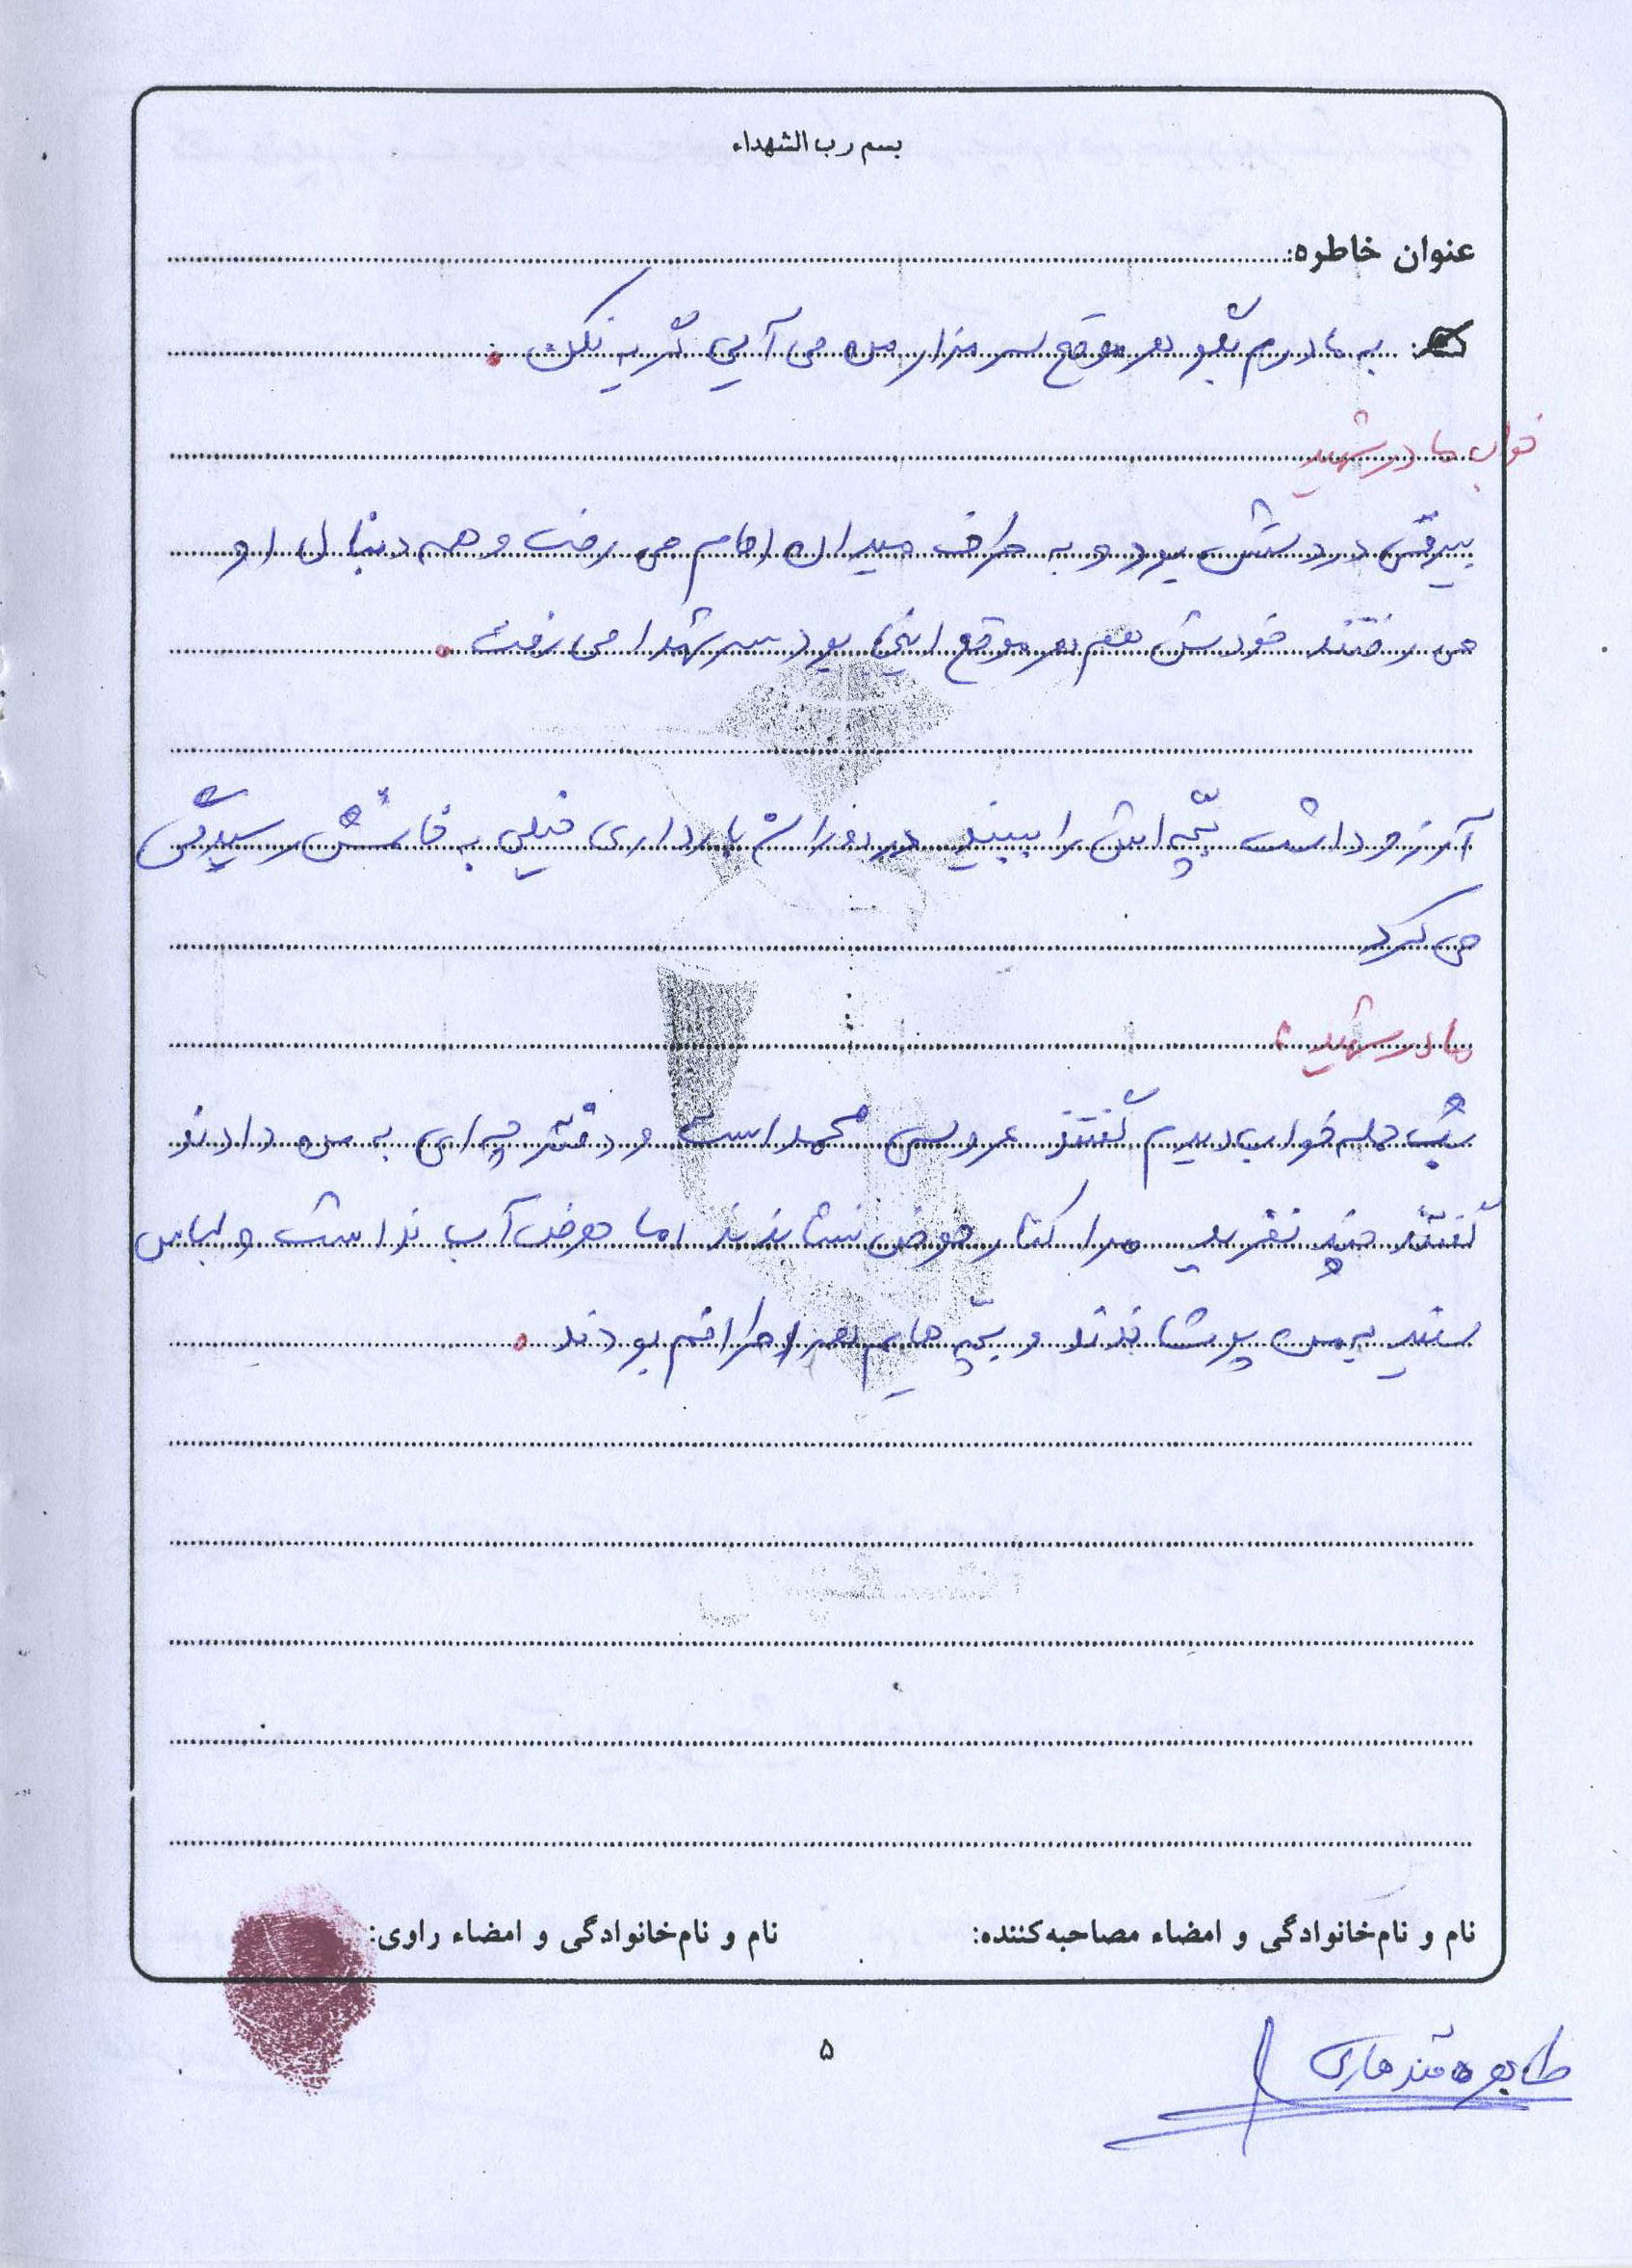 بسم رب الشهداء
عنوان خاطره:
به مادرم بگو هر موقع سر مزار من می آیی گریه نکن .
خواب مادر شهید
بیرقی در دستش بود و به طرف میدان امام می رفت و همه دنبال او
می رفتند خودش هم هر موقع اینجا بود سر شهدا می رفت .
آرزو داشت بچّه اش را ببیند در دوران بارداری خیلی به خانمش رسیدگی
می کرد
مادر شهید :
شب خواب دیدم گفتند عروسی محمد است و دفترچه ای به من دادند
گفتند چند نفرید مرا کنار حوض نشاندند اما حوض آب نداشت و لباس
سفید به من پوشاندند و بچّه هایم هم اطرافم بودند .
نام و نام خانوادگی و امضاء مصاحبه کننده:
نام و نام خانوادگی و امضاء راوی:
۵
طاهره قندهاری